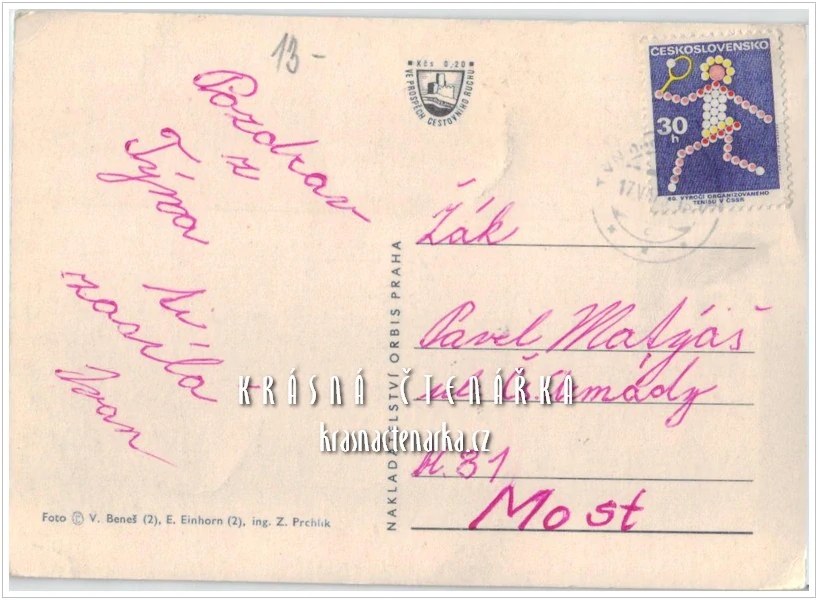 13-
Kčs 0,20
VE PROSPĚCH CESTOVNÍHO RUCHU
ČESKOSLOVENSKO
30 h
80. VÝROČÍ ORGANIZOVANÉHO
TENISU V ČSSR
17.VI
Pozdrav
z
Týna
Ti
zasílá
Ivan
Žák
Pavel Matyáš
ul. Čs. armády
81
Most
NAKLADATELSTVÍ ORBIS PRAHA
KRÁSNÁ ČTENÁŘKA
krasnactenarka.cz
Foto © V. Beneš (2), E. Einhorn (2), ing. Z. Prchlík